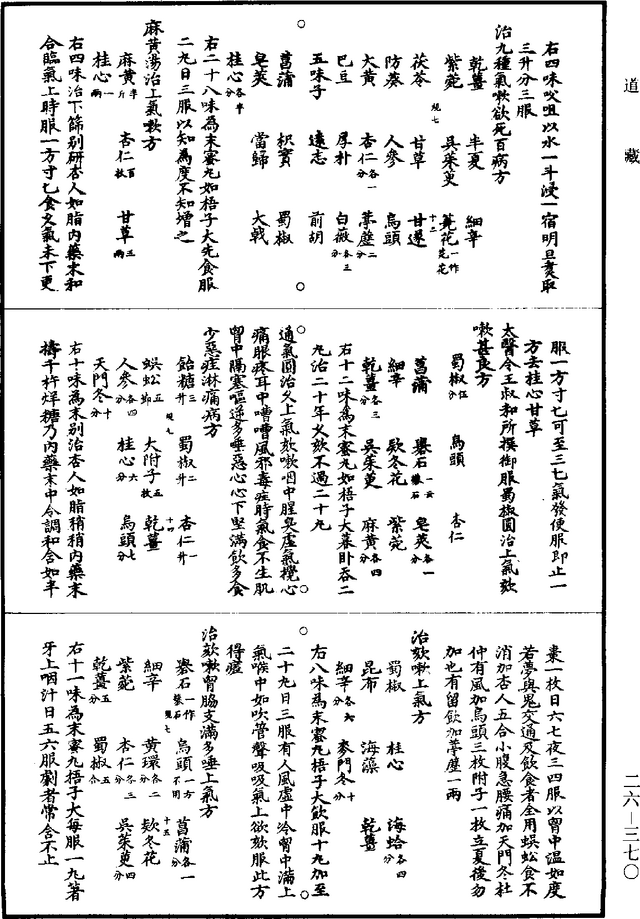 道藏
右四味㕮咀以水一斗浸一宿明旦煑取
三升分三服
治九種氣嗽欲死百病方
乾薑　半夏　細辛
紫菀　吳茱萸　芫花一作莞花
茯苓　甘草　甘遂
防葵　人參　烏頭
大黃　杏仁各一分　葶藶二分
巴豆　厚朴　白薇各三分
五味子　遠志　前胡
菖蒲　枳實　蜀椒
皂莢　當歸　大戟
桂心各半分
右二十八味為末蜜丸如梧子大先食服
二丸日三服以知為度不知增之
麻黃湯治上氣嗽方
麻黃半斤　杏仁百枚　甘草三兩
桂心一兩
右四味治下篩別研杏人如脂內藥末和
合臨氣上時服一方寸匕食久氣未下更
服一方寸匕可至三七氣發便服即止一
方去桂心甘草
太醫令王叔和所撰御服蜀椒圓治上氣欬
嗽甚良方
蜀椒伍分　烏頭　杏仁
菖蒲　礬石一云礜石　皂莢各一分
細辛　欵冬花　紫菀
乾薑各三分　吳茱萸　麻黃各四分
右十二味為末蜜丸如梧子大暮卧吞二
丸治二十年欬不過二十丸
通氣圓治久上氣欬嗽咽中腥臭虛氣攪心
痛眼疼耳中嘈嘈風邪毒疰時氣食不生肌
胷中隔塞嘔逆多唾惡心心下堅滿飲多食
少惡疰淋痛病方
飴糖三升　蜀椒二升　杏仁一升
蜈蚣五節　大附子五枚　乾薑
人參各四分　桂心六分　烏頭七分
天門冬十分
右十味為末別治杏人如脂稍稍內藥末
擣千杵烊糖乃內藥末中令調和含如半
棗一枚日六七夜三四服以胷中溫如度
若夢與鬼交通及飲食者全用蜈蚣食不
消加杏人五合小腹急腰痛加天門冬杜
仲有風加烏頭三枚附子一枚立夏後勿
加也有留飲加葶藶一兩
治欬嗽上氣方
蜀椒　桂心　海蛤各四分
昆布　海藻　乾薑
細辛各六分　麥門冬十分
右八味為末蜜丸梧子大飲服十丸加至
二十丸日三服有人風虛中冷胷中滿上
氣喉中如吹管聲吸吸氣上欲欬服此方
得瘥
治欬嗽胷脇支滿多唾上氣方
礬石一作礜石　烏頭一方不用　菖蒲各一分
細辛　黃環各二分　欵冬花
紫菀　杏仁各三分　吳茱萸四分
乾薑五分　蜀椒五合
右十一味為末蜜丸梧子大每服一丸著
牙上咽汁日五六服劇者常含不止
二六—三七〇